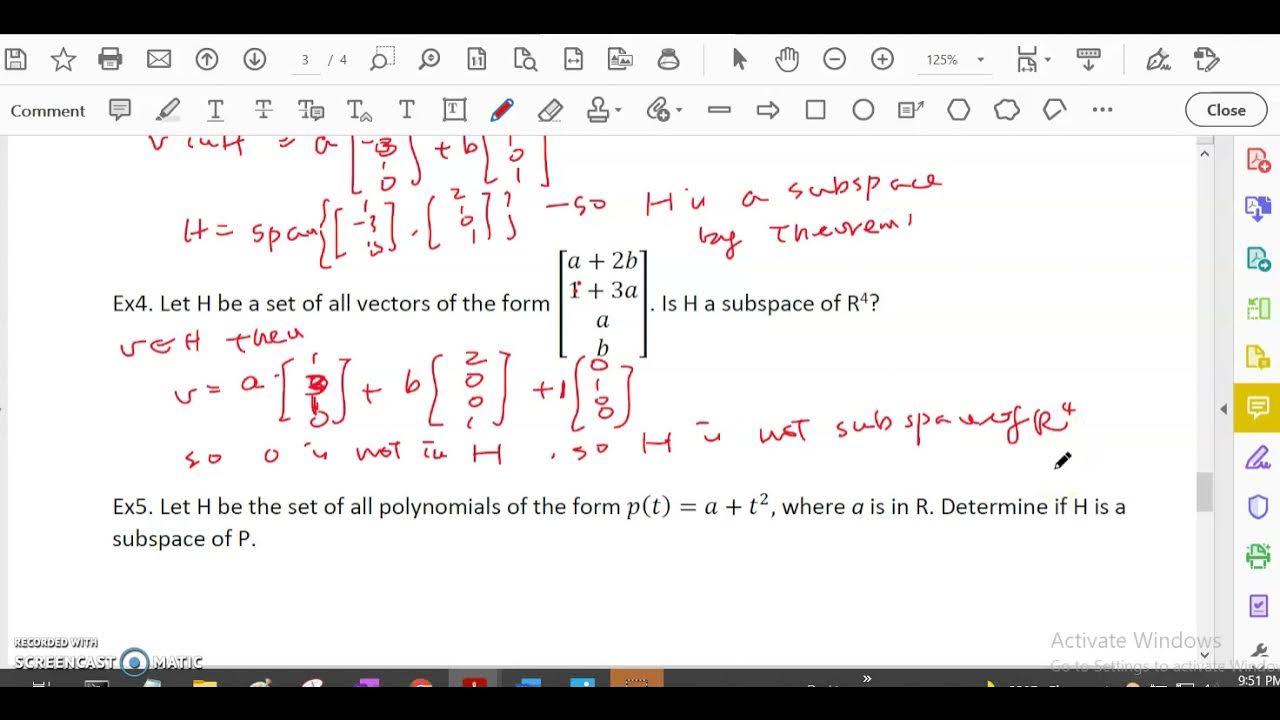 3 / 4
125%
Comment
Close
v in H = a [-3 1 0] + b [1 0 1]
H = span{[1 -3 1 0], [2 1 0 1]} - so H is a subspace
by Theorem 1
[a + 2b
Ex4. Let H be a set of all vectors of the form 1 + 3a . Is H a subspace of R⁴?
a
b]
v ∈ H then
v = a · [1 3 1 0] + b [2 0 0 1] + 1 [0 1 0 0]
so 0 is not in H . so H is not subspace of R⁴
Ex5. Let H be the set of all polynomials of the form p(t) = a + t², where a is in R. Determine if H is a
subspace of P.
RECORDED WITH
SCREENCAST MATIC
Activate Windows
Go to Settings to activate Windo
9:51 PM